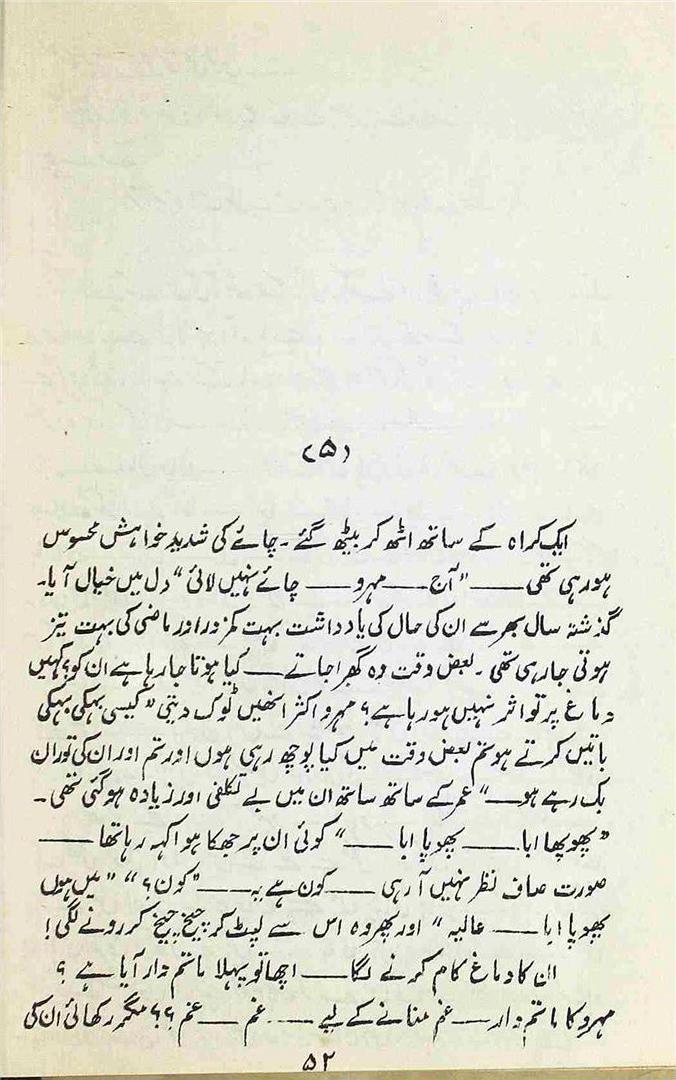 (۵)
ایک کراہ کے ساتھ اٹھ کر بیٹھ گئے ۔ چائے کی شدید خواہش محسوس
ہو رہی تھی ـــــ ”آج ـــــ مہرو ـــــ چائے نہیں لائی“ دل میں خیال آیا۔
گذشتہ سال بھر سے ان کی حال کی یادداشت بہت کمزور اور ماضی کی بہت تیز
ہوتی جا رہی تھی ۔ بعض وقت وہ گھبرا جاتے ـــــ کیا ہوتا جا رہا ہے ان کو؟ کہیں
دماغ پر تو اثر نہیں ہو رہا ہے؟ مہرو اکثر انھیں ٹوک دیتی ”کیسی بہکی بہکی
باتیں کرتے ہو تم بعض وقت میں کیا پوچھ رہی ہوں اور تم اوران کی توران
بک رہے ہو ـــــ“ عمر کے ساتھ ساتھ ان میں بے تکلفی اور زیادہ ہو گئی تھی ۔
”پھوپھا ابا ـــــ پھوپا ابا ـــــ“ کوئی ان پر جھکا ہوا کہہ رہا تھا ـــــ
صورت صاف نظر نہیں آ رہی ـــــ کون ہے یہ ـــــ ”کون؟“ ”میں ہوں
پھوپا ابا ـــــ عالیہ“ اور پھر وہ اس سے لپٹ کر چیخ چیخ کر رونے لگی!
ان کا دماغ کام کرنے لگا ـــــ اچھا تو پہلا ماتم دار آیا ہے ؟
مہرو کا ماتم دار ـــــ غم منانے کے لیے ـــــ غم ـــــ غم ؟؟ مگر رکھائی ان کی
۵۲